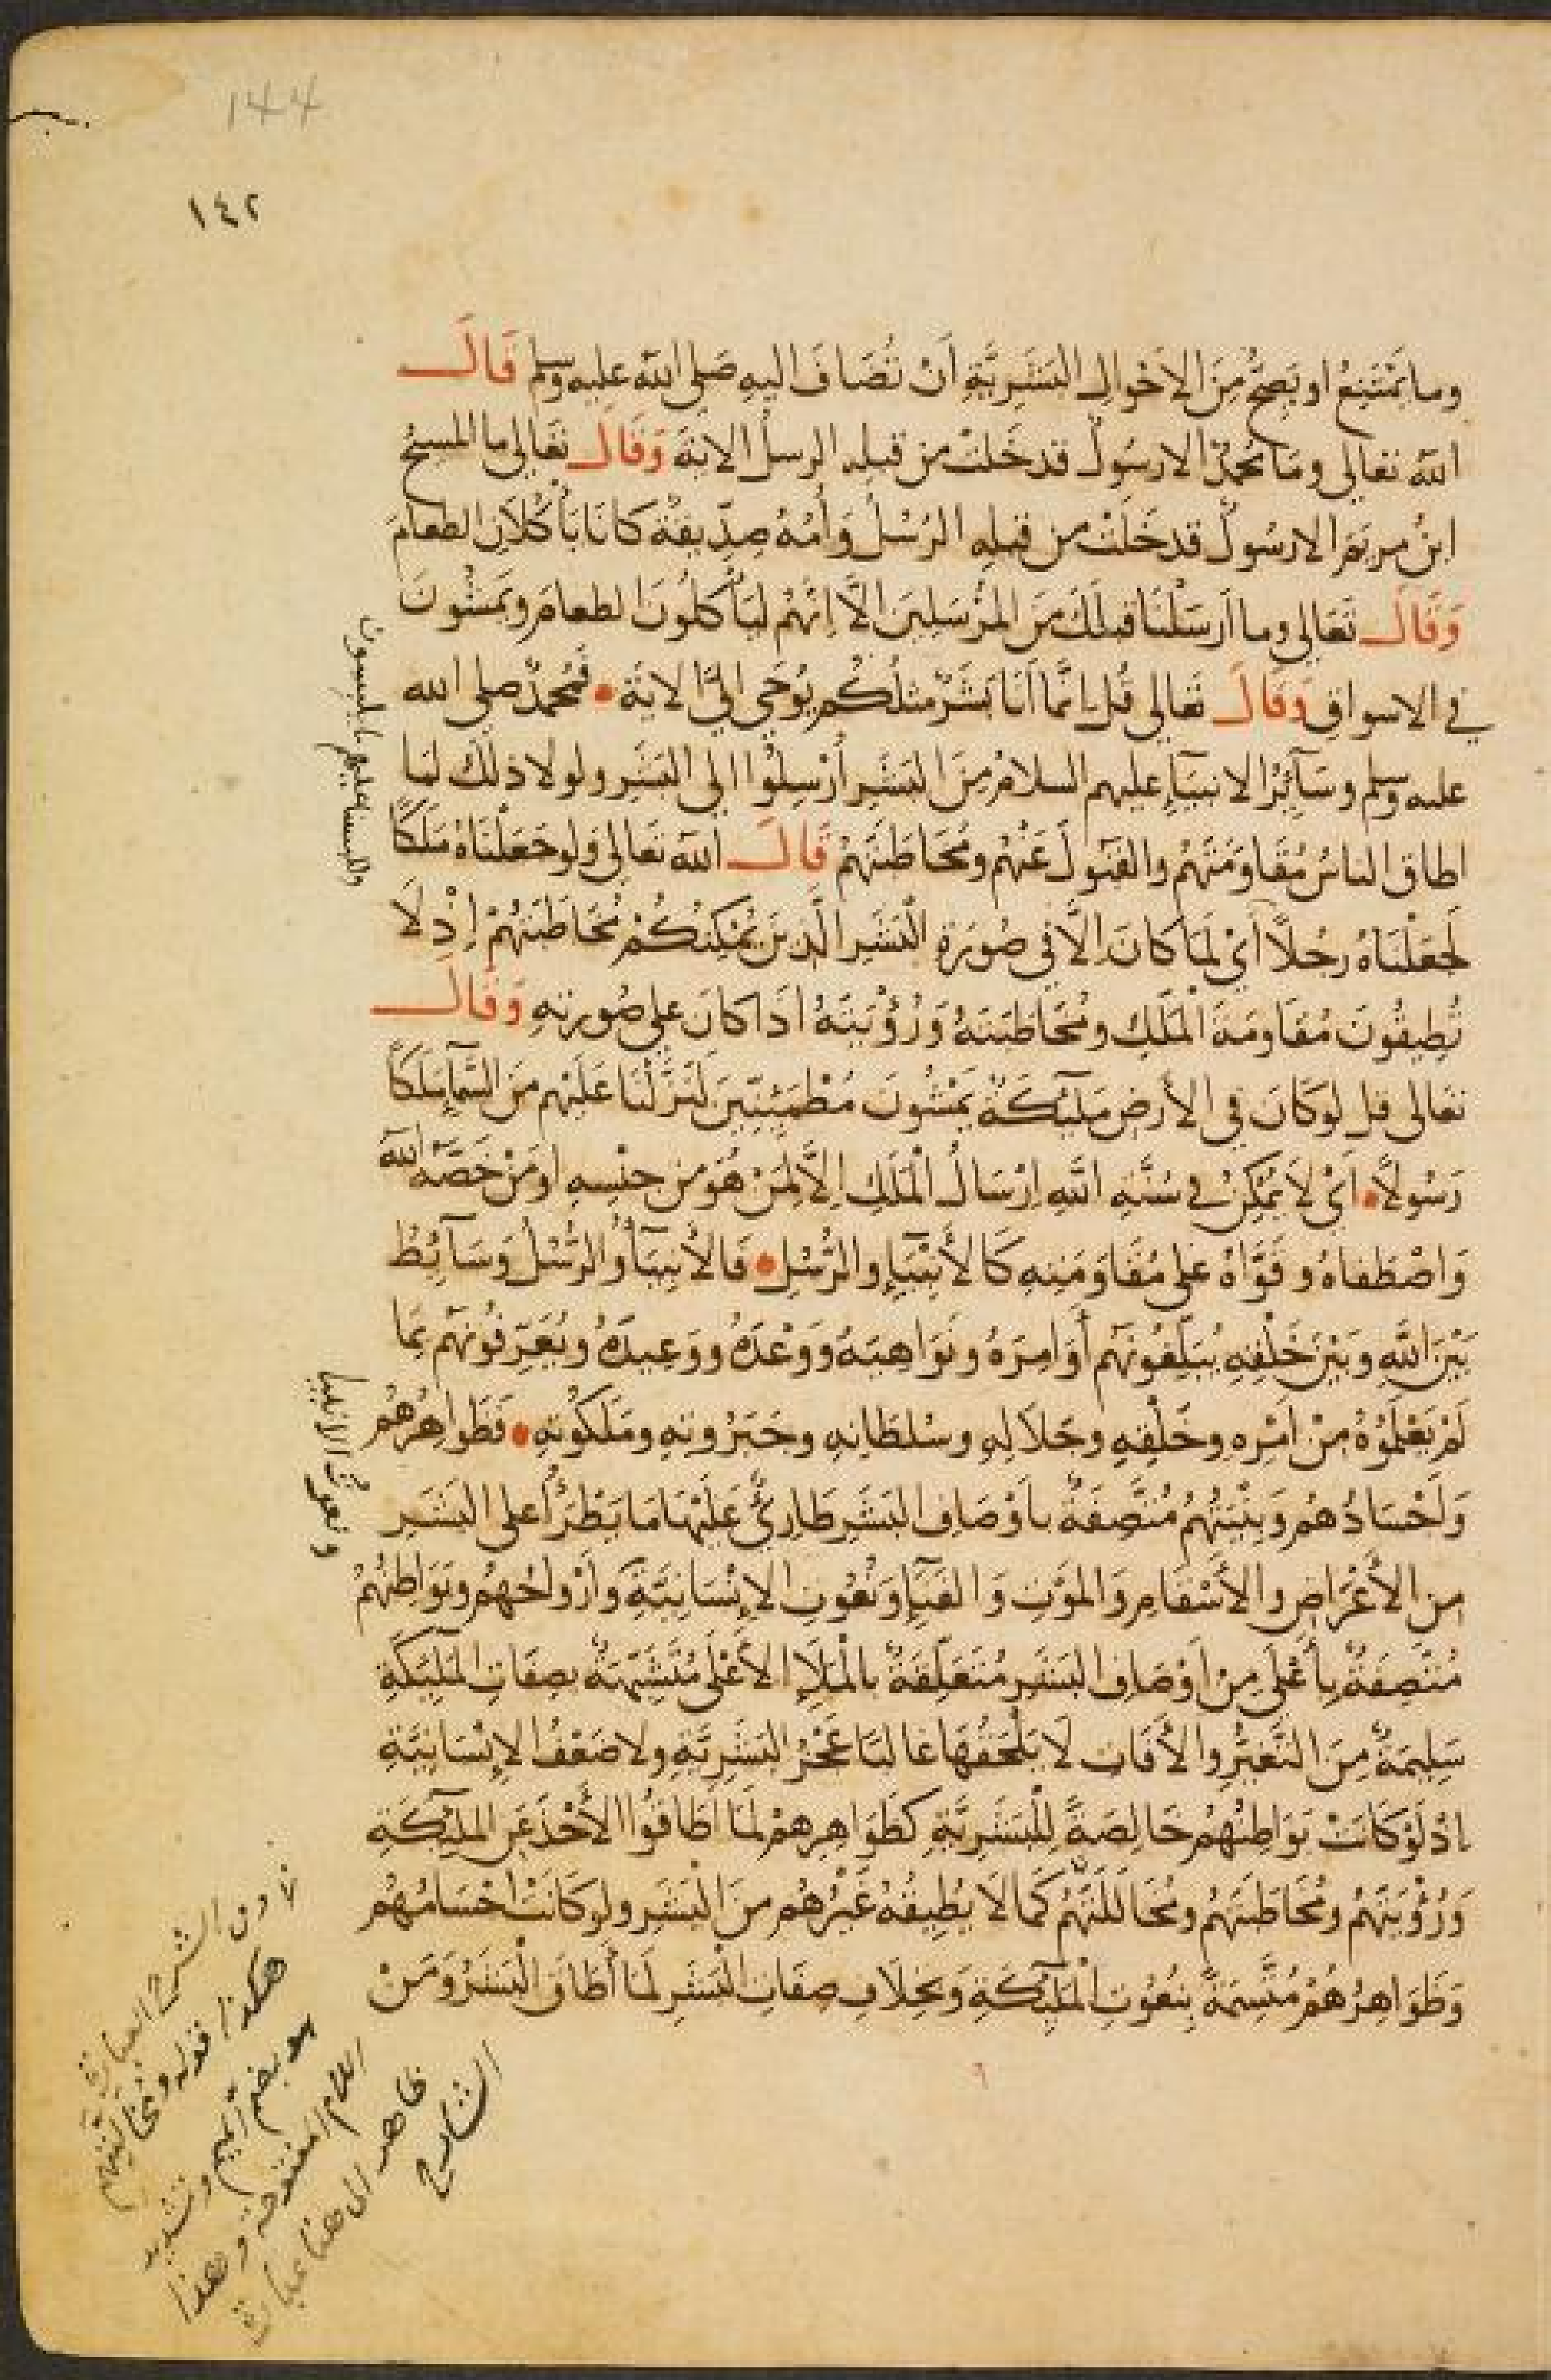 144
١٤٢
وما يَمْتَنِعُ او يَصِحُّ مِنَ الاَحْوالِ البَشَرِيَّةِ اَنْ تُضَافَ اليهِ صَلى اللهُ عليه وسلم قَالَ
اللهُ تعالى ومَا مُحمّدٌ الا رسُولٌ قد خَلَتْ من قبلِهِ الرسلُ الايَةَ وَقَالَ تعَالى ما المسيحُ
ابنُ مريَمَ الا رسُولٌ قد خَلَتْ من قبلِهِ الرُسُلُ وَاُمُّهُ صِدِّيقَةٌ كانَا يَأْكُلاَنِ الطعامَ
وَقَالَ تَعَالى وما اَرسَلْنَا قبلَكَ مِنَ المُرْسَلِينَ الاَّ اِنَّهُمْ لَيَأْكُلُونَ الطعامَ ويَمْشُونَ
في الاسواقِ وَقَالَ تعَالى قُل اِنَّما اَنَا بَشَرٌ مثلُكُم يُوحَى اِليَّ الايَةَ • فمُحمدٌ صلى الله
عليه وسلم وسَآئِرُ الانبيَآءِ عليهم السلامُ مِنَ البَشَرِ أُرْسِلُوا الى البَشَرِ ولولا ذلكَ لمَا
اطاق الناسُ مُقَاوَمَتَهُمْ والقَبُولَ عَنْهُم ومُخَاطَبَتَهُمْ قَالَ اللهُ تَعَالى وَلو جَعَلْنَاهُ مَلَكًا
لَجَعَلْنَاهُ رجُلاً اَىْ لَمَا كانَ اِلاَّ في صُورَةِ البَشَرِ الَّذينَ يُمْكِنُكُمْ مُخَاطَبَتُهُمْ اِذْ لاَ
تُطِيقُونَ مُقَاوَمَةَ الْمَلَكِ ومُخَاطَبَتَهُ وَرُؤْيَتَهُ اذَا كانَ على صُورتِهِ وَقَالَ
تعَالى قل لو كَانَ في الأَرضِ مَلَيِكَةٌ يَمْشُونَ مُطْمَئِنِّينَ لَنَزَّلْنَا عَلَيْهم مِنَ السَّمآءِ مَلَكًا
رَسُولاً • اَىْ لاَ يُمْكِنُ في سُنَّةِ اللهِ اِرْسَالُ الْمَلَكِ اِلاَّ لِمَنْ هُوَ من جِنْسِهِ او مَنْ خَصَّهُ اللهُ
وَاصْطَفاهُ وقَوَّاهُ على مُقَاوَمَتِهِ كَالأَنْبِيَآءِ والرُّسُلِ • فَالأَنبِيَآءُ والرُّسُلُ وَسَآئِطُ
بَيْنَ اللهِ وبَيْنَ خَلْقِهِ يُبَلِّغُونَهُم أَوَامِرَهُ ونَوَاهِيَهُ وَوَعْدَهُ ووَعِيدَهُ ويُعَرِّفُونَهُم بِمَا
لَمْ يَعْلَمُوهُ مِنْ اَمْرِهِ وخَلْقِهِ وجَلاَلِهِ وسُلطَانِهِ وجَبَرُوتِهِ ومَلَكُوتِهِ • فَظَواهِرُهُم
وَاَجْسَادُهُم وَبِنْيَتُهُمْ مُتَّصِفَةٌ باَوْصَافِ البَشَرِ طَارِئٌ عَلَيْهَا مَا يَطْرَأُ على البَشَرِ
مِنَ الأَعْرَاضِ والأَسْقَامِ وَالمَوْتِ وَالفَنَآءِ وَنُعُوتِ الاِنْسَانِيَّةِ وَاَرْواحُهُم وبَوَاطِنُهُمْ
مُتَّصِفَةٌ بِأَعْلَى مِنْ اَوْصَافِ البَشَرِ مُتَعَلِّقَةٌ بالْمَلاَءِ الأَعْلَى مُتَشَبِّهَةٌ بصِفَاتِ المَلَيِكَةِ
سَلِيمَةٌ مِنَ التَّغَيُّرِ والاَفَاتِ لاَ يَلْحَقُهَا غَالبًا عَجْزُ البَشَرِيَّةِ ولا ضَعْفُ الاِنْسَانِيَّةِ
اِذْ لَوْ كَانَتْ بَوَاطِنُهُم خَالِصَةً لِلْبَشَرِيَّةِ كظَوَاهِرِهمْ لَمَا اَطَاقُوا الأَخْذَ عَنِ المَلَيِكَةِ
وَرُؤْيَتَهُم ومُخَاطَبَتَهُم ومُخَالَلَتَهُمْ كَمَا لاَ يُطِيقُهُ غَيْرُهُم مِنَ الْبَشَرِ ولو كَانَتْ اَجْسَامُهُمْ
وَظَوَاهِرُهُمْ مُتَّسِمَةً بِنُعُوتِ الْمَلَيِكَةِ وَبِخِلاَفِ صِفَاتِ الْبَشَرِ لَمَا أَطَاقَ الْبَشَرُ وَمَنْ
وللبسنا عليهم ما يلبسون
ونعوت الانبيا
هكذا قوله ومخالّتهم
بضم الميم وتشديد
اللام المفتوحة وهذا
ظاهر ال هنا عبارة
الشارح